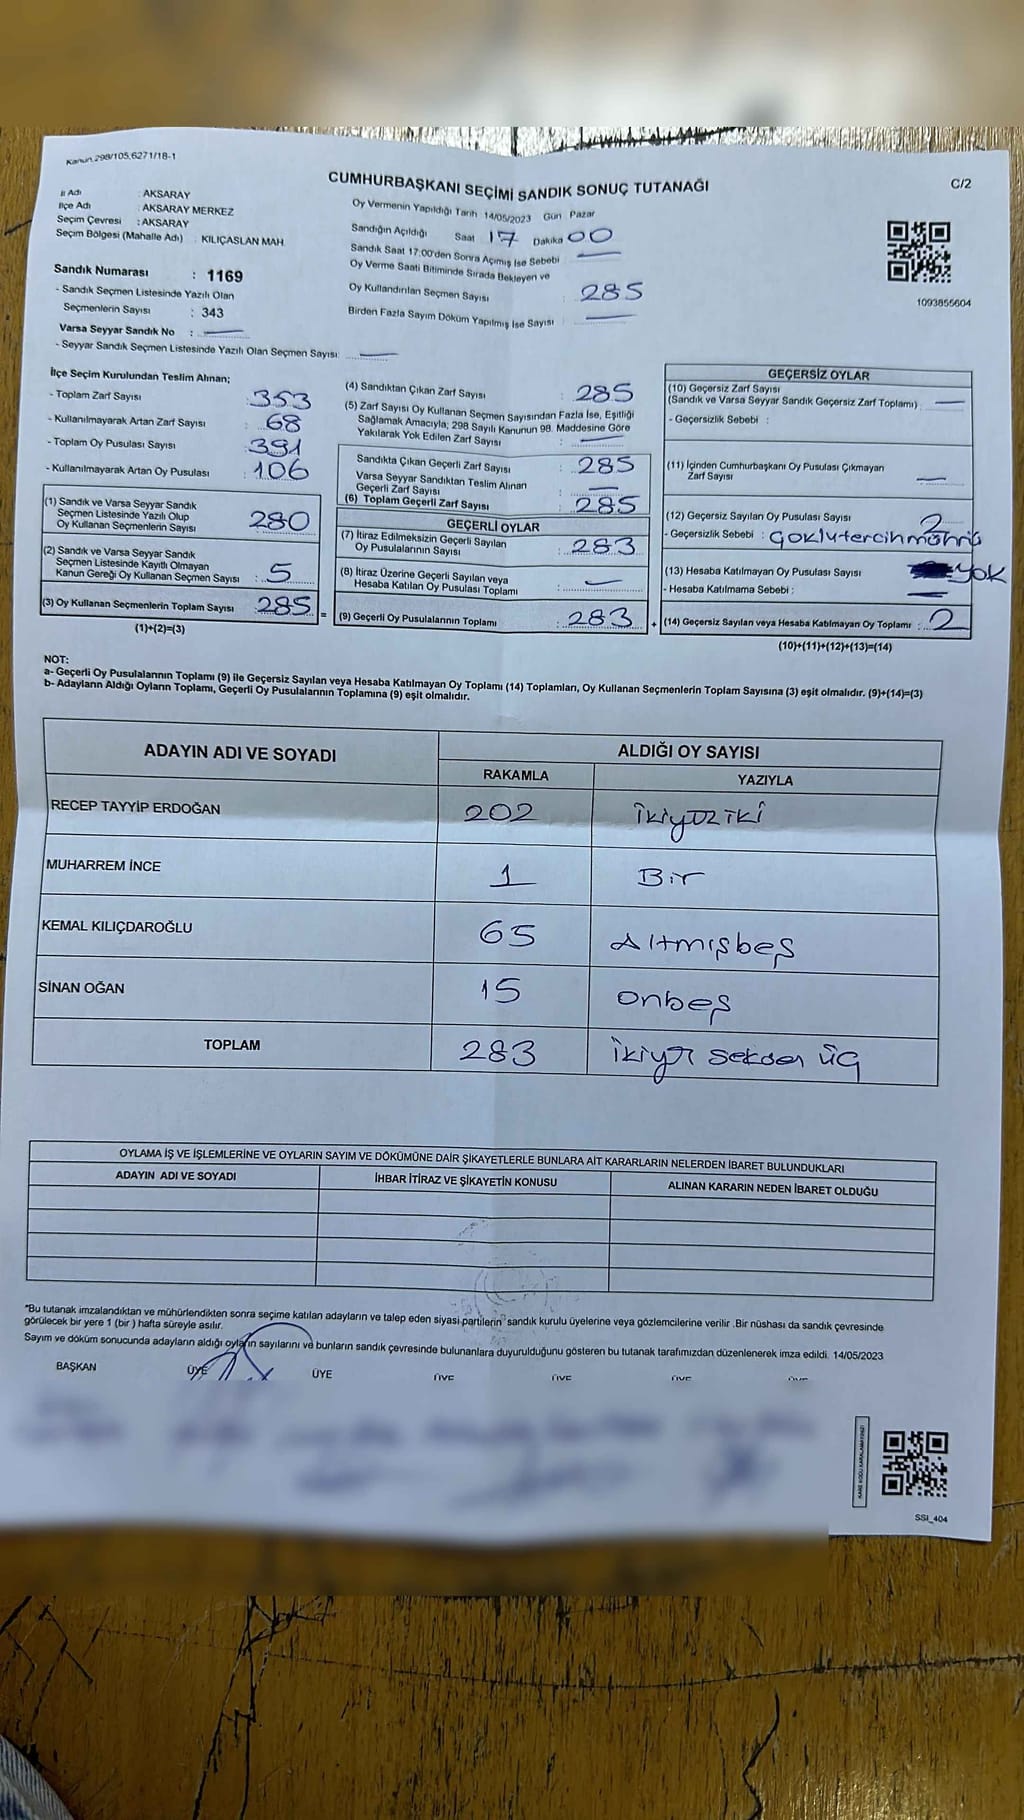 Kanun 298/105,6271/18-1
CUMHURBAŞKANI SEÇİMİ SANDIK SONUÇ TUTANAĞI
C/2
İl Adı : AKSARAY
İlçe Adı : AKSARAY MERKEZ
Seçim Çevresi : AKSARAY
Seçim Bölgesi (Mahalle Adı) : KILIÇASLAN MAH.
Sandık Numarası : 1169
- Sandık Seçmen Listesinde Yazılı Olan
Seçmenlerin Sayısı : 343
Varsa Seyyar Sandık No : —
- Seyyar Sandık Seçmen Listesinde Yazılı Olan Seçmen Sayısı: —
Oy Vermenin Yapıldığı Tarih 14/05/2023 Gün Pazar
Sandığın Açıldığı Saat 17 Dakika 00
Sandık Saat 17:00'den Sonra Açımış İse Sebebi —
Oy Verme Saati Bitiminde Sırada Bekleyen ve
Oy Kullandırılan Seçmen Sayısı : 285
Birden Fazla Sayım Döküm Yapılmış İse Sayısı : —
1093855604
İlçe Seçim Kurulundan Teslim Alınan;
- Toplam Zarf Sayısı : 353
- Kullanılmayarak Artan Zarf Sayısı : 68
- Toplam Oy Pusulası Sayısı : 391
- Kullanılmayarak Artan Oy Pusulası : 106
(1) Sandık ve Varsa Seyyar Sandık
Seçmen Listesinde Yazılı Olup
Oy Kullanan Seçmenlerin Sayısı : 280
(2) Sandık ve Varsa Seyyar Sandık
Seçmen Listesinde Kayıtlı Olmayan
Kanun Gereği Oy Kullanan Seçmen Sayısı : 5
(3) Oy Kullanan Seçmenlerin Toplam Sayısı : 285 =
(1)+(2)=(3)
(4) Sandıktan Çıkan Zarf Sayısı : 285
(5) Zarf Sayısı Oy Kullanan Seçmen Sayısından Fazla İse, Eşitliği
Sağlamak Amacıyla; 298 Sayılı Kanunun 98. Maddesine Göre
Yakılarak Yok Edilen Zarf Sayısı : —
Sandıkta Çıkan Geçerli Zarfta Sayısı : 285
Varsa Seyyar Sandıktan Teslim Alınan
Geçerli Zarf Sayısı : —
(6) Toplam Geçerli Zarf Sayısı : 285
GEÇERLİ OYLAR
(7) İtiraz Edilmeksizin Geçerli Sayılan
Oy Pusulalarının Sayısı : 283
(8) İtiraz Üzerine Geçerli Sayılan veya
Hesaba Katılan Oy Pusulası Toplamı : —
(9) Geçerli Oy Pusulalarının Toplamı : 283 +
GEÇERSİZ OYLAR
(10) Geçersiz Zarf Sayısı
(Sandık ve Varsa Seyyar Sandık Geçersiz Zarf Toplamı) : —
- Geçersizlik Sebebi :
(11) İçinden Cumhurbaşkanı Oy Pusulası Çıkmayan
Zarf Sayısı : —
(12) Geçersiz Sayılan Oy Pusulası Sayısı : 2
- Geçersizlik Sebebi :
(13) Hesaba Katılmayan Oy Pusulası Sayısı yok
- Hesaba Katılmama Sebebi : —
(14) Geçersiz Sayılan veya Hesaba Katılmayan Oy Toplamı : 2
(10)+(11)+(12)+(13)=(14)
NOT:
a- Geçerli Oy Pusulasının Toplamı (9) ile Geçersiz Sayılan veya Hesaba Katılmayan Oy Toplamı (14) Toplamları, Oy Kullanan Seçmenlerin Toplam Sayısına (3) eşit olmalıdır. (9)+(14)=(3)
b- Adayların Aldığı Oyların Toplamı, Geçerli Oy Pusulalarının Toplamına (9) eşit olmalıdır.
ADAYIN ADI VE SOYADI
ALDIĞI OY SAYISI
RAKAMLA YAZIYLA
RECEP TAYYİP ERDOĞAN 202 ikiyüziki
MUHARREM İNCE 1 Bir
KEMAL KILIÇDAROĞLU 65 Altmışbeş
SİNAN OĞAN 15 onbeş
TOPLAM 283 ikiyüz seksen üç
OYLAMA İŞ VE İŞLEMLERİNE VE OYLARIN SAYIM VE DÖKÜMÜNE DAİR ŞİKAYETLERLE BUNLARA AİT KARARLARIN NELERDEN İBARET BULUNDUKLARI
ADAYIN ADI VE SOYADI İHBAR İTİRAZ VE ŞİKAYETİN KONUSU ALINAN KARARIN NEDEN İBARET OLDUĞU
*Bu tutanak imzalandıktan ve mühürlendikten sonra seçime katılan adayların ve talep eden siyasi partilerin sandık kurulu üyelerine veya gözlemcilerine verilir .Bir nüshası da sandık çevresinde
görülecek bir yere 1 (bir ) hafta süreyle asılır.
Sayım ve döküm sonucunda adayların aldığı oyların sayılarını ve bunların sandık çevresinde bulunanlara duyurulduğunu gösteren bu tutanak tarafımızdan düzenlenerek imza edildi. 14/05/2023
BAŞKAN ÜYE ÜYE ÜYE ÜYE ÜYE ÜYE
KARE KODU KARALAMAYINIZ!
SSI_404